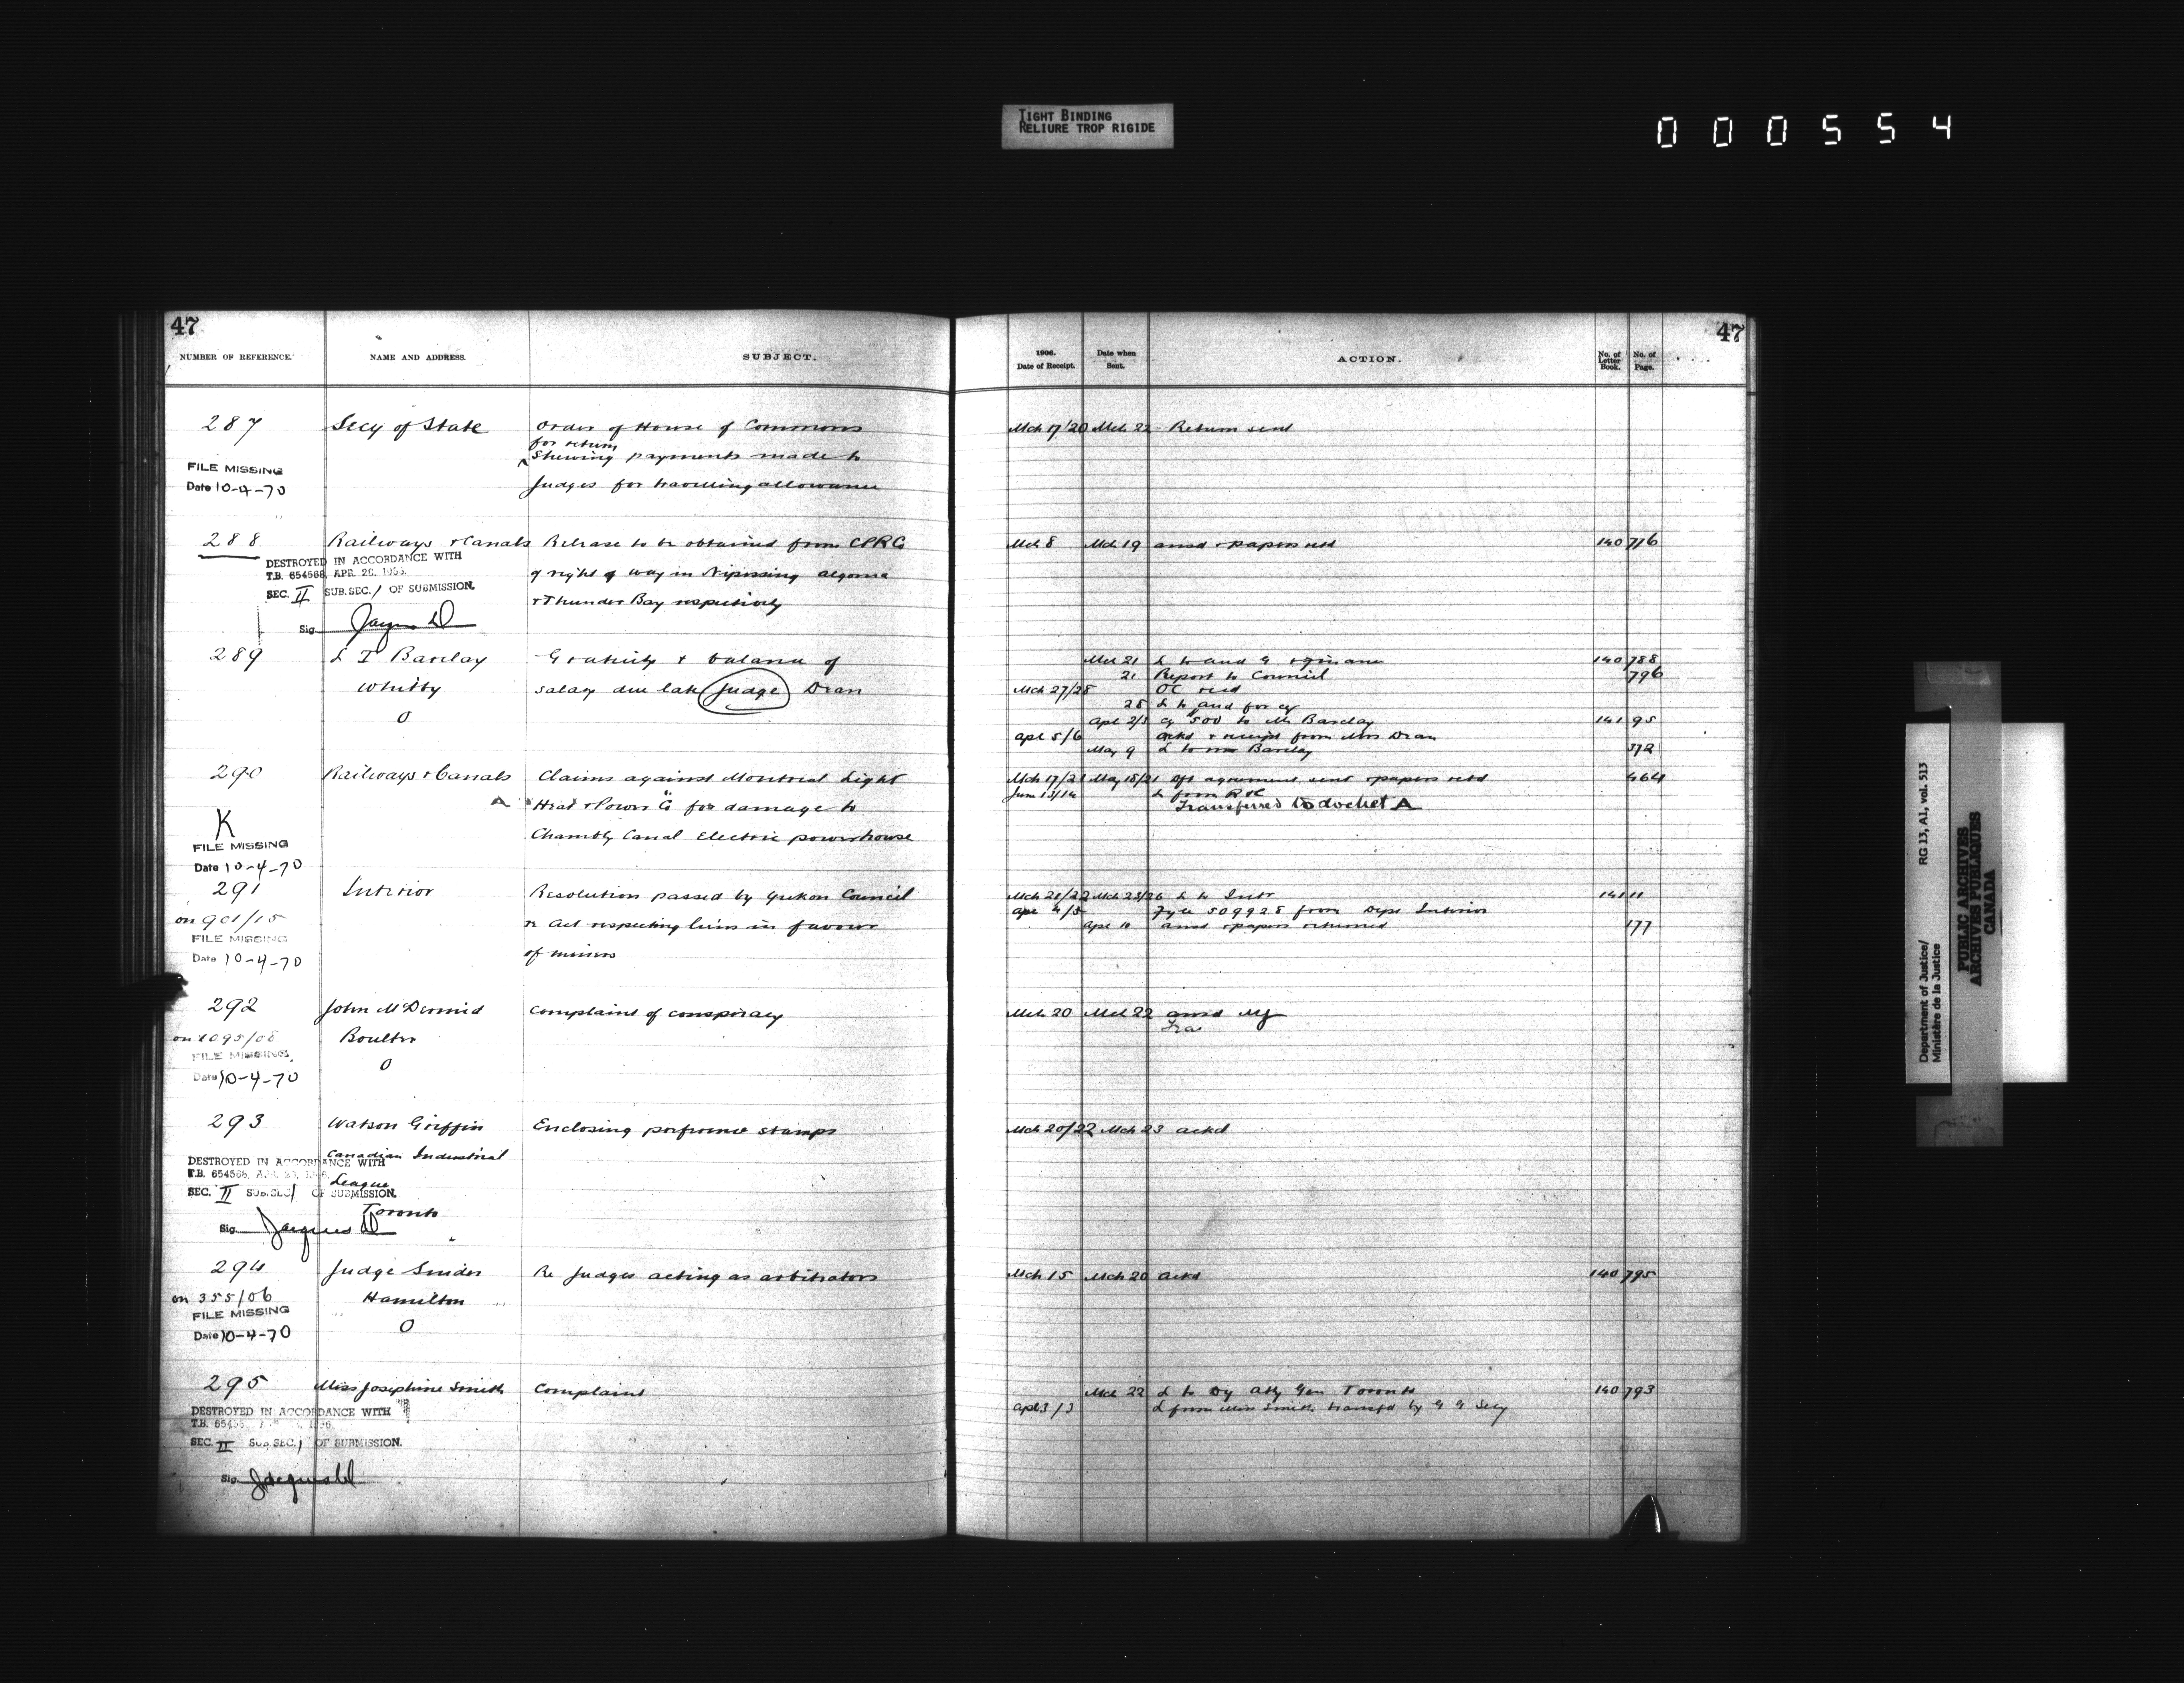 TIGHT BINDING
RELIURE TROP RIGIDE
000554
47
NUMBER OF REFERENCE.
NAME AND ADDRESS.
SUBJECT.
287
Secy of State
Order of House of Commons
for return
Shewing payments made to
Judges for travelling allowance
FILE MISSING
Date 10-4-70
288
Railways & Canals
Release to be obtained from CPR Co
of right of way in Nipissing Algoma
& Thunder Bay respectively
DESTROYED IN ACCORDANCE WITH
T.B. 654568, APR. 26,
SEC. II SUB.SEC. / OF SUBMISSION.
Sig.
289
L T Barclay
Whitby
O
Gratuity & balance of
salary due late Judge Dean
290
Railways & Canals
Claims against Montreal Light
A Heat & Power Co for damage to
Chambly Canal Electric powerhouse
K
FILE MISSING
Date 10-4-70
291
Interior
Resolution passed by Yukon Council
re Act respecting liens in favour
of miners
on 901/15
FILE MISSING
Date 10-4-70
292
John McDermid
Boulter
O
Complaint of conspiracy
on 1095/08
FILE MISSING
Date 10-4-70
293
Watson Griffin
Canadian Industrial
League
Toronto
Enclosing preference stamps
DESTROYED IN ACCORDANCE WITH
T.B. 654568,
SEC. II SUB.SEC / OF SUBMISSION.
Sig.
294
Judge Snider
Hamilton
O
Re Judges acting as arbitrators
on 355/06
FILE MISSING
Date 10-4-70
295
Miss Josephine Smith
Complaint
DESTROYED IN ACCORDANCE WITH
T.B.
SEC. II SUB.SEC. / OF SUBMISSION.
Sig.
47
1906.
Date of Receipt.
Date when
Sent.
ACTION.
No. of
Letter
Book.
No. of
Page.
Mch 17/20 Mch 22 Return sent
Mch 8 Mch 19 ansd & papers retd 140 776
Mch 21 L to Aud G & Finance 140 788
21 Report to Council 796
Mch 27/28 OC recd
28 L to Aud for cq
Apl 2/3 cq 500 to Mr Barclay 141 95
Apl 5/6 Ackd & receipt from Mrs Dean
May 9 L to Barclay 372
Mch 17/21 May 18/21 dft agreement sent & papers retd 464
June 13/14 L from R & C
Transferred to docket A
Mch 21/22 Mch 23/26 L to Intr 141 11
Apl 4/5 Fyle 509928 from Dept Interior
Apl 10 ansd & papers returned 177
Mch 20 Mch 22 ansd
Mch 20/22 Mch 23 ackd
Mch 15 Mch 20 Ackd 140 795
Mch 22 L to Dy Atty Gen Toronto 140 793
Apl 3/3 L from Miss Smith transfd by G G Secy
Department of Justice/
Ministère de la Justice
RG 13, A1, vol. 513
PUBLIC ARCHIVES
ARCHIVES PUBLIQUES
CANADA